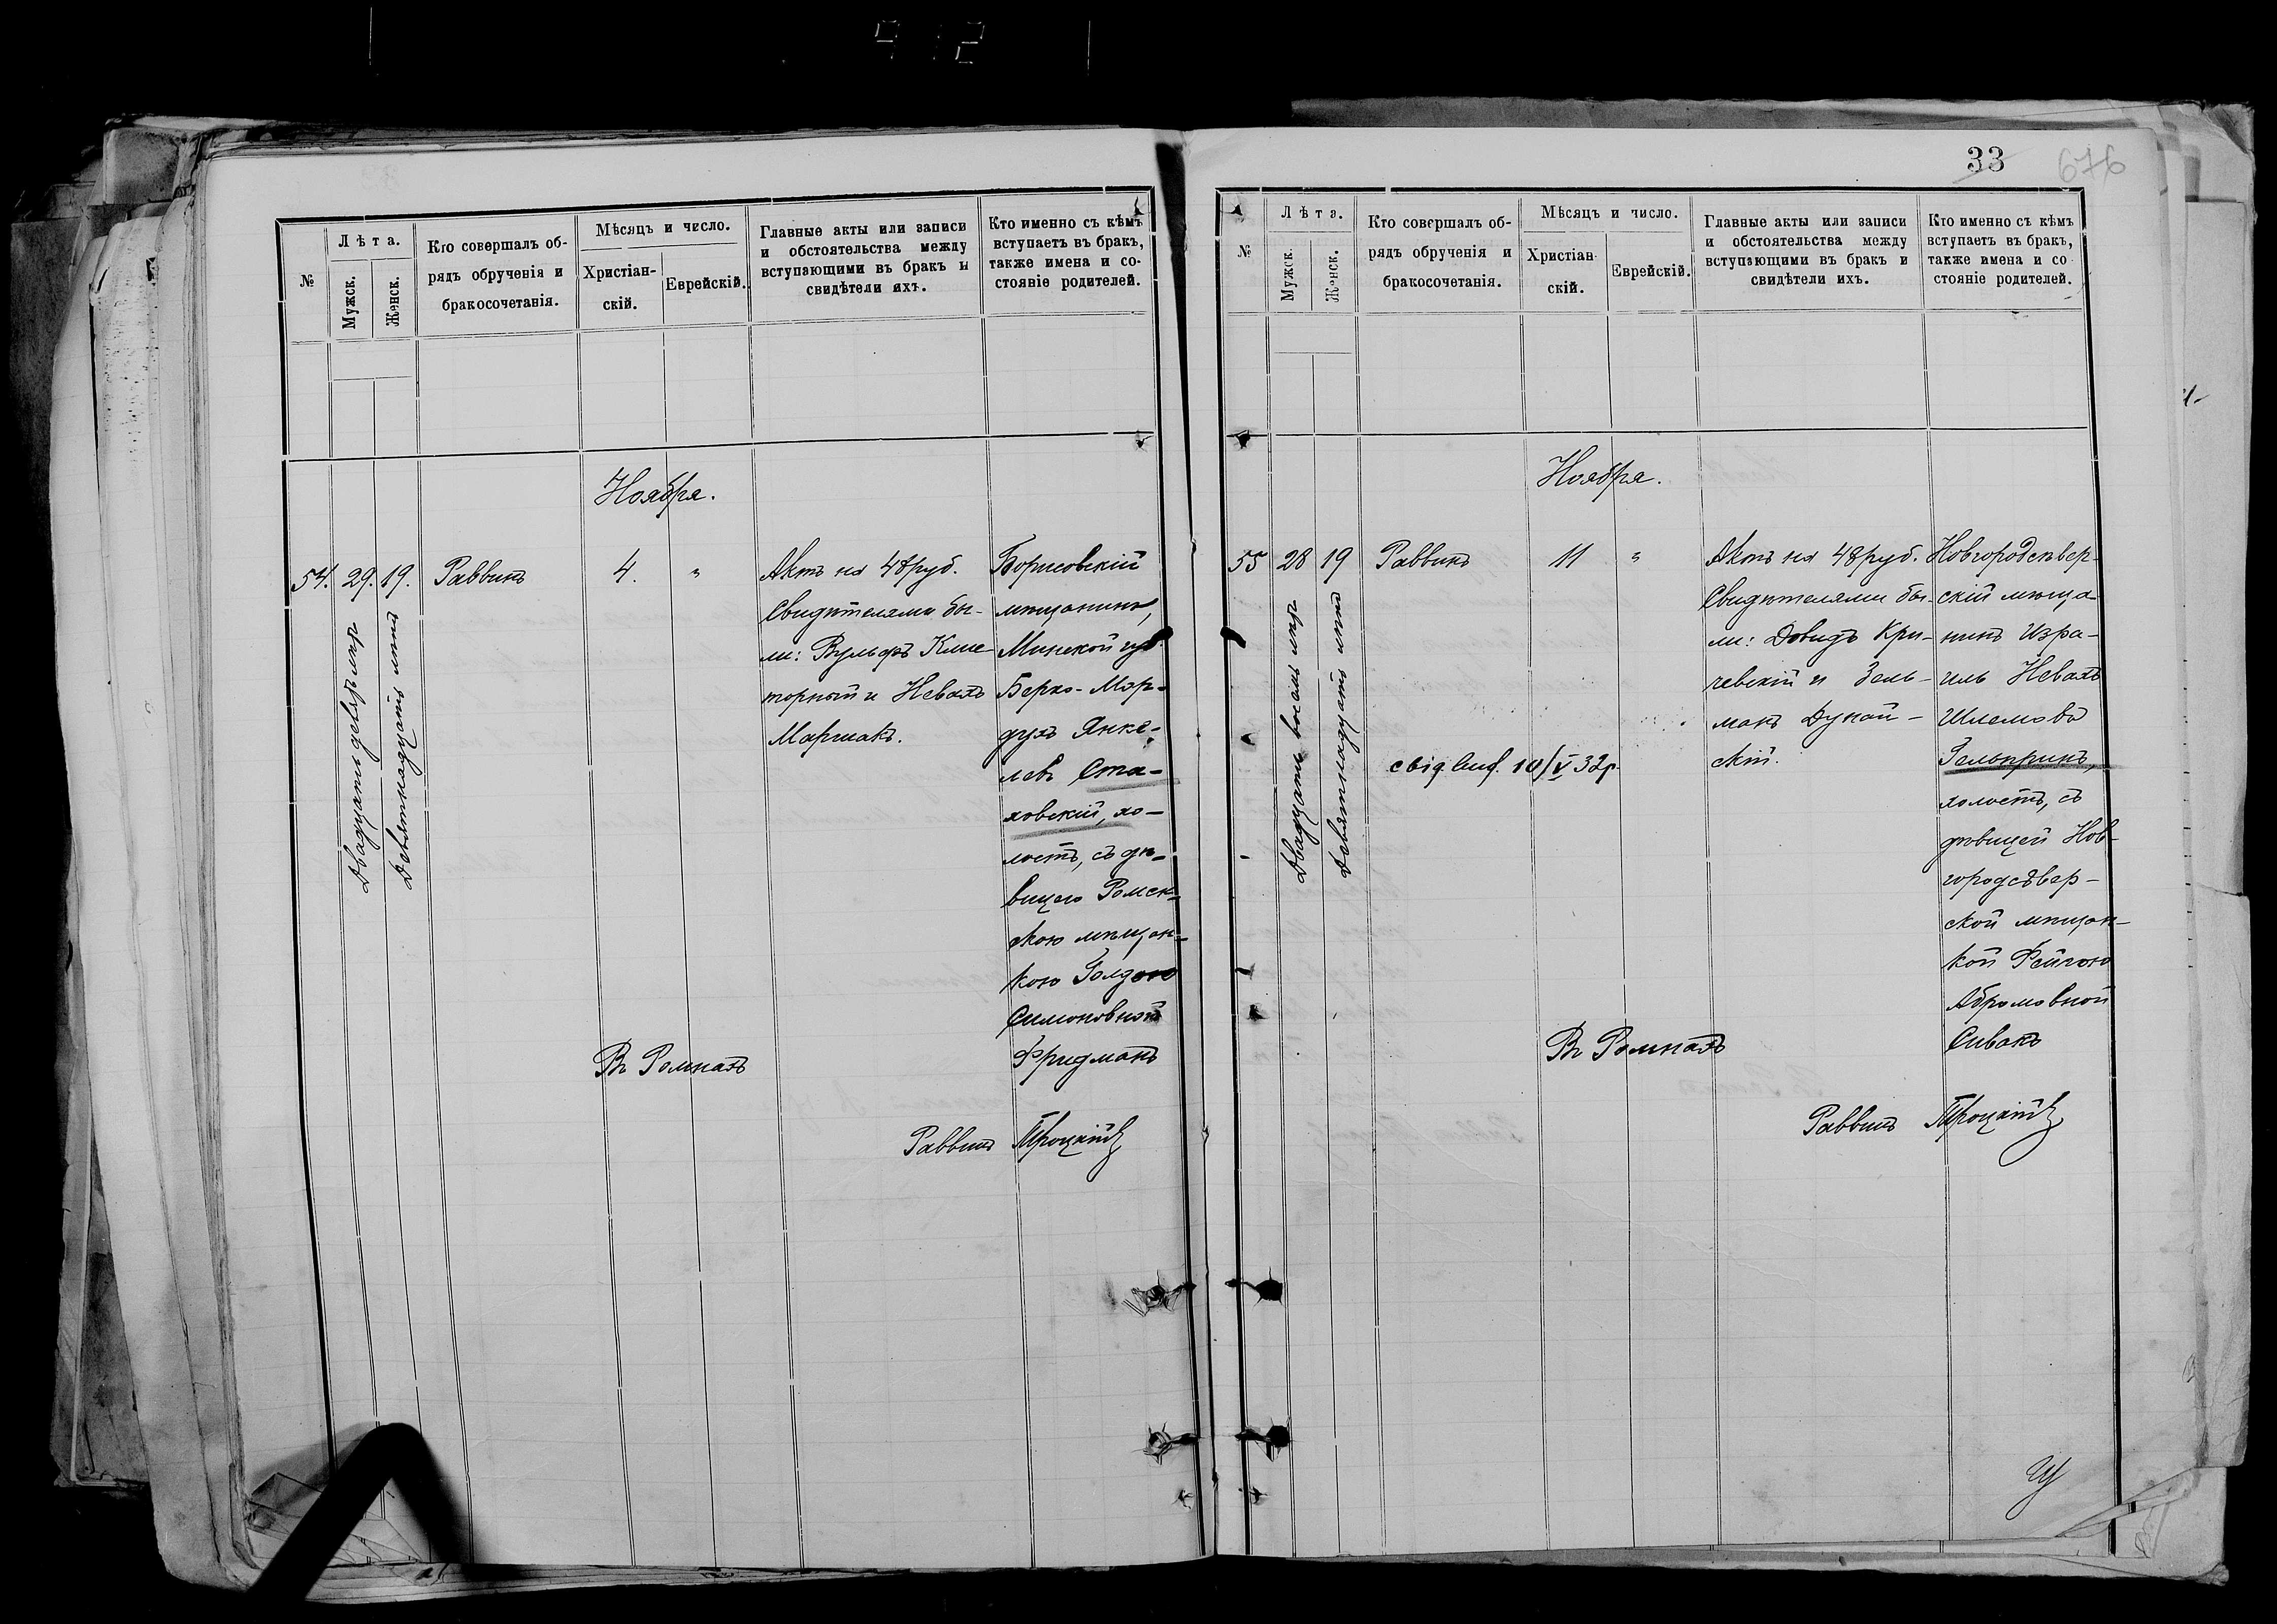 33
676
№
Лѣта.
Мужск.
Женск.
Кто совершалъ об-
рядъ обрученія и
бракосочетанія.
Мѣсяцъ и число.
Христіан-
скій.
Еврейскій.
Главные акты или записи
и обстоятельства между
вступающими въ бракъ и
свидѣтели ихъ.
Кто именно съ кѣмъ
вступаетъ въ бракъ,
также имена и со-
стояніе родителей.
Ноября.
54. 29. 19. Раввинъ 4. "
Двадцать девять лѣтъ
Девятнадцать лѣтъ
Актъ на 48 руб.
Свидѣтелями бы-
ли: Вульфъ Клие-
торный и Невахъ
Маршакъ.
Борисовскій
мѣщанинъ,
Минской губ.
Берко-Мор-
духъ Янке-
левъ Ста-
ховскій, хо-
лостъ, съ дѣ-
вицею Роменс-
кою мѣщан-
кою Голдою
Симоновной
Фридманъ
Въ Ромнахъ
Раввинъ
№
Лѣта.
Мужск.
Женск.
Кто совершалъ об-
рядъ обрученія и
бракосочетанія.
Мѣсяцъ и число.
Христіан
скій.
Еврейскій.
Главные акты или записи
и обстоятельства между
вступающими въ бракъ и
свидѣтели ихъ.
Кто именно съ кѣмъ
вступаетъ въ бракъ,
также имена и со
стояніе родителей.
Ноября.
55 28 19 Раввинъ 11 "
Двадцать восемь лѣтъ
Девятнадцать лѣтъ
свід. 10/V 32р.
Актъ на 48 руб.
Свидѣтелями бы-
ли: Довидъ Кри-
чевскій и Зель-
манъ Дунай-
скій.
Новгородсѣвер-
скій мѣща-
нинъ Изра-
иль Невахъ
Шлемовъ
Гельпринъ,
холостъ, съ
дѣвицей Нов-
городсѣвер-
ской мѣщан-
кой Фейгою
Абрамовной
Сивакъ
Въ Ромнахъ
Раввинъ